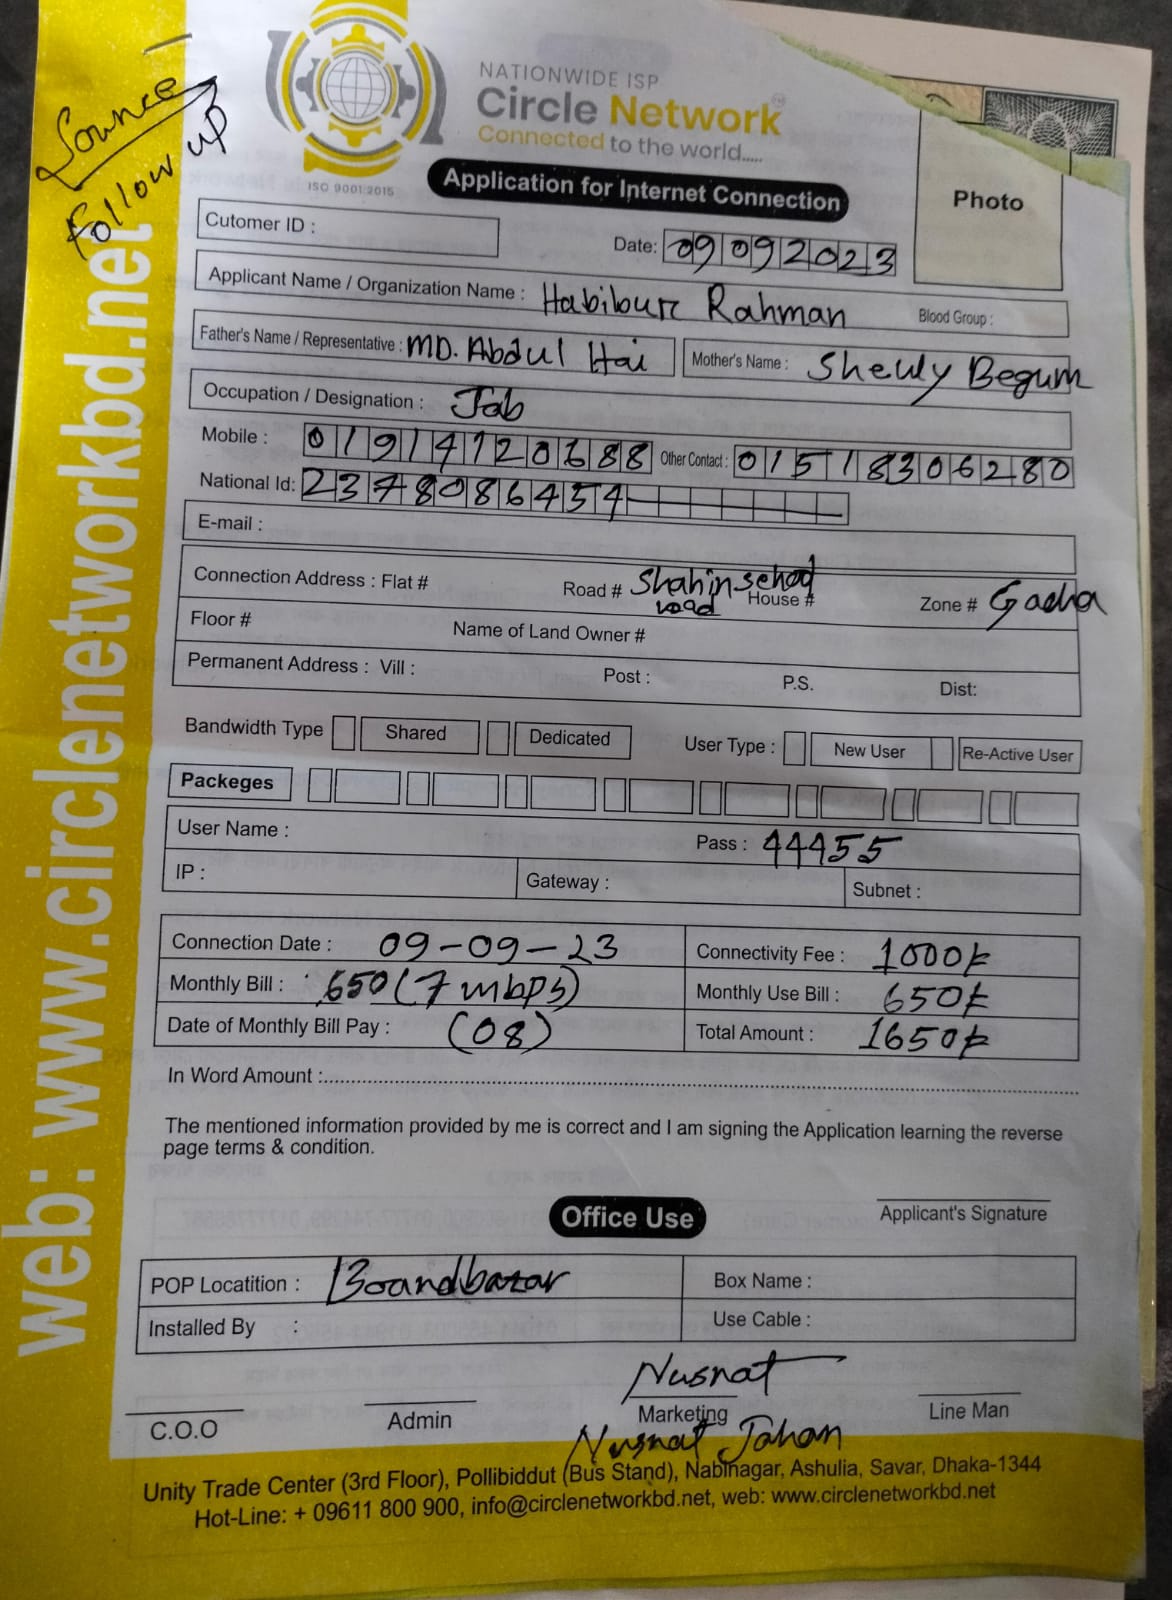 Source
Follow up
NATIONWIDE ISP
Circle Network
Connected to the world.....
ISO 9001:2015
Application for Internet Connection
Photo
Cutomer ID :
Date: 09092023
Applicant Name / Organization Name : Habibur Rahman Blood Group :
Father's Name / Representative : MD. Abdul Hai Mother's Name : Sheuly Begum
Occupation / Designation : Job
Mobile : 01914720688 Other Contact : 01518306280
National Id: 2378086454
E-mail :
Connection Address : Flat # Road # Shahin school road House # Zone # Gacha
Floor # Name of Land Owner #
Permanent Address : Vill : Post : P.S. Dist:
Bandwidth Type Shared Dedicated User Type : New User Re-Active User
Packeges
User Name : Pass : 44455
IP : Gateway : Subnet :
Connection Date : 09-09-23 Connectivity Fee : 1000৳
Monthly Bill : 650 (7 mbps) Monthly Use Bill : 650৳
Date of Monthly Bill Pay : (08) Total Amount : 1650৳
In Word Amount :
The mentioned information provided by me is correct and I am signing the Application learning the reverse
page terms & condition.
Applicant's Signature
Office Use
POP Locatition : Boardbazar Box Name :
Installed By : Use Cable :
Nusrat
C.O.O Admin Marketing Line Man
Nusrat Jahan
Unity Trade Center (3rd Floor), Pollibiddut (Bus Stand), Nabinagar, Ashulia, Savar, Dhaka-1344
Hot-Line: + 09611 800 900, info@circlenetworkbd.net, web: www.circlenetworkbd.net
web: www.circlenetworkbd.net